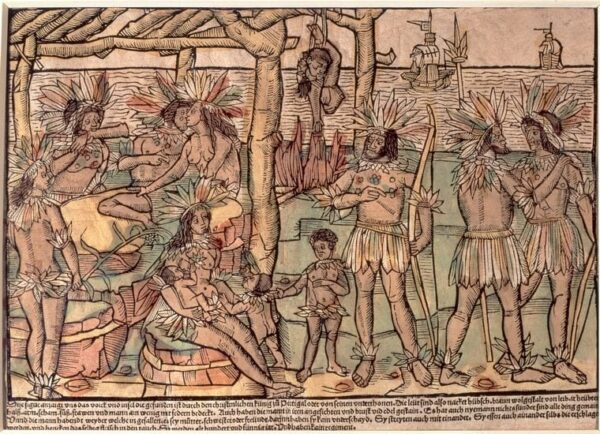 Dise figur anzaigt uns das volck und insel die gefunden ist durch den christenlichen künig zů Portigal oder von seinen underthonen. Die leüt sind also nacket hübsch, braun wolgestalt von leib. ir heübter
halß. arm. scham. füß. frawen und mann ain wenig mit federn bedeckt. Auch haben die mann in iren angesichten und brust vil edel gestain. Es hat auch nyemann nichts sunder sind alle ding gemain
Und die mann habendt weyber welche in gefallen. es sey můter, schwester oder freündt. darinn haben sy kain underschayd. Sy streyten auch mit einander. Sy essen auch ainander selbs die erschlagen
werden und hencken das selbig fleisch in den rauch. Sy werden alt hundert und Und haben kain regiment